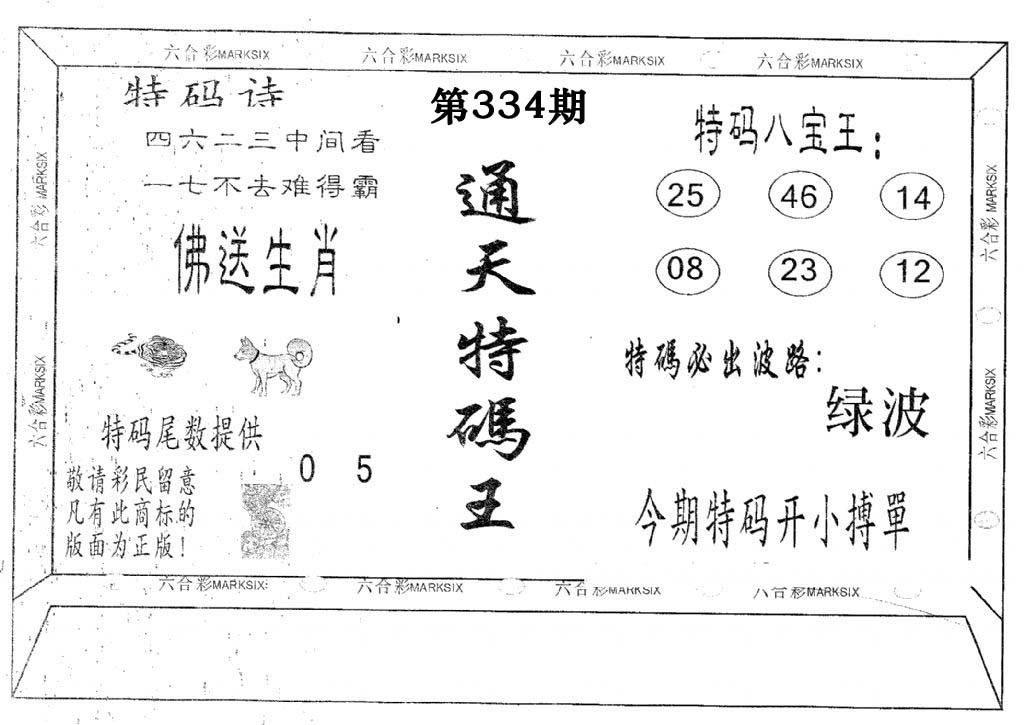 六合彩MARKSIX 六合彩MARKSIX 六合彩MARKSIX 六合彩MARKSIX
特码诗
四六二三中间看
一七不去难得霸
佛送生肖
特码尾数提供
0 5
敬请彩民留意
凡有此商标的
版面为正版！
第334期
通天特碼王
特码八宝王：
25 46 14
08 23 12
特碼必出波路：
绿波
今期特码开小搏單
六合彩MARKSIX
六合彩MARKSIX
六合彩MARKSIX
六合彩MARKSIX
六合彩MARKSIX 六合彩MARKSIX 六合彩MARKSIX 六合彩MARKSIX